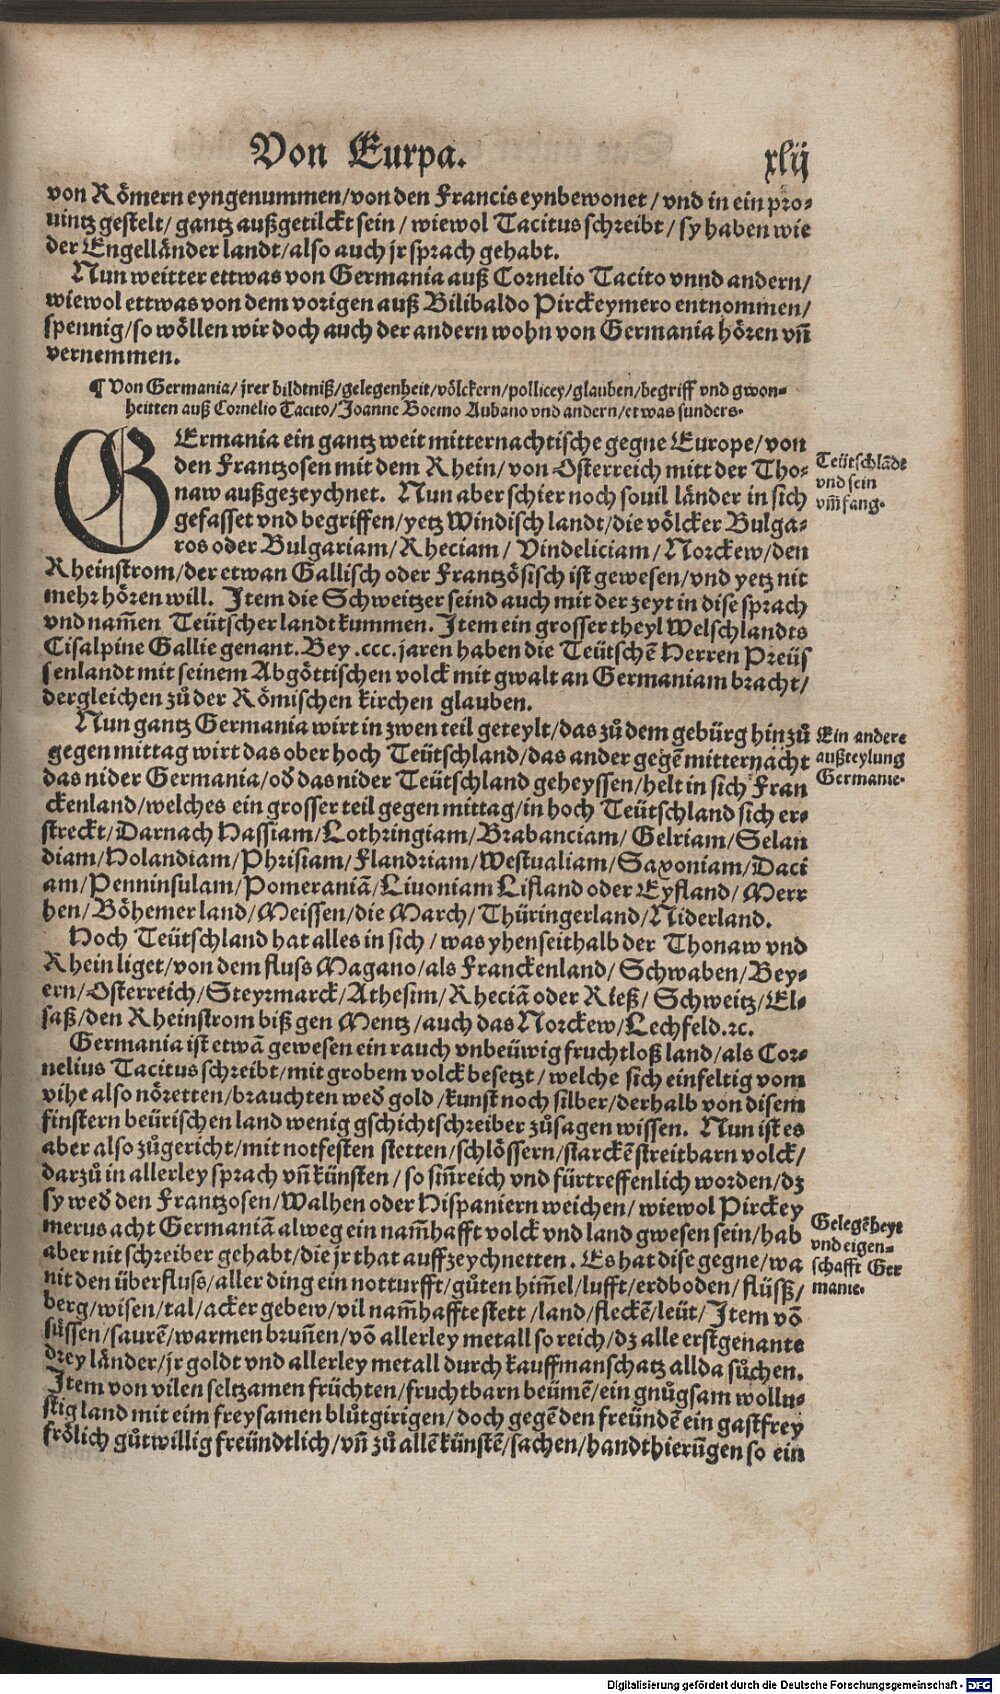 Von Eurpa.
xlij
von Römern eyngenummen/von den Francis eynbewonet/vnd in ein pro-
uintz gestelt/gantz außgetilckt sein/wiewol Tacitus schreibt/sy haben wie
der Engelländer landt/also auch jr sprach gehabt.
Nun weitter ettwas von Germania auß Cornelio Tacito vnnd andern/
wiewol ettwas von dem vorigen auß Bilibaldo Pirckeymero entnommen/
spennig/so wöllen wir doch auch der andern wohn von Germania hören vn̄
vernemmen.
¶ Von Germania/jrer bildtniß/gelegenheit/völckern/pollicey/glauben/begriff vnd gwon-
heitten auß Cornelio Tacito/Joanne Boemo Aubano vnd andern/etwas sunders.
GErmania ein gantz weit mitternachtische gegne Europe/von
den Frantzosen mit dem Rhein/von Osterreich mitt der Tho-
naw außgezeychnet. Nun aber schier noch souil länder in sich
gefasset vnd begriffen/yetz Windisch landt/die völcker Bulga-
ros oder Bulgariam/Rheciam/Vindeliciam/Norckew/den
Rheinstrom/der etwan Gallisch oder Frantzösisch ist gewesen/vnd yetz nit
mehr hören will. Item die Schweitzer seind auch mit der zeyt in dise sprach
vnd nam̄en Teütscher landt kummen. Item ein grosser theyl Welschlandts
Cisalpine Gallie genant. Bey .ccc. jaren haben die Teütschē Herren Preüs
senlandt mit seinem Abgöttischen volck mit gwalt an Germaniam bracht/
dergleichen zů der Römischen kirchen glauben.
Teütschlāde
vnd sein
vm̄fang.
Nun gantz Germania wirt in zwen teil geteylt/das zů dem gebürg hinzů
gegen mittag wirt das ober hoch Teütschland/das ander gegē mitternacht
das nider Germania/oď das nider Teütschland geheyssen/helt in sich Fran
ckenland/welches ein grosser teil gegen mittag/in hoch Teütschland sich er-
streckt/Darnach Hassiam/Lothringiam/Brabanciam/Gelriam/Selan
diam/Holandiam/Phrisiam/Flandriam/Westualiam/Saxoniam/Daci
am/Penninsulam/Pomeraniā/Liuoniam Lifland oder Eyfland/Merr
hen/Böhemerland/Meissen/die March/Thüringerland/Niderland.
Ein andere
außteylung
Germanie.
Hoch Teütschland hat alles in sich/was yhenseithalb der Thonaw vnd
Rhein liget/von dem fluss Magano/als Franckenland/Schwaben/Bey-
ern/Osterreich/Steyrmarck/Athesim/Rheciā oder Rieß/Schweitz/El-
saß/den Rheinstrom biß gen Mentz/auch das Norckew/Lechfeld.ꝛc.
Germania ist etwā gewesen ein rauch vnbeüwig fruchtloß land/als Cor-
nelius Tacitus schreibt/mit grobem volck besetzt/welche sich einfeltig vom
vihe also nöretten/brauchten weď gold/kunst noch silber/derhalb von disem
finstern beürischen land wenig gschichtschreiber zůsagen wissen. Nun ist es
aber also zůgericht/mit notfesten stetten/schlössern/starckē streitbarn volck/
darzů in allerley sprach vn̄ künsten/so sin̄reich vnd fürtreffenlich worden/dz
sy weď den Frantzosen/Walhen oder Hispaniern weichen/wiewol Pirckey
merus acht Germaniā alweg ein nam̄hafft volck vnd land gwesen sein/hab
aber nit schreiber gehabt/die jr that auffzeychnetten. Es hat dise gegne/wa
nit den überfluss/aller ding ein notturfft/gůten him̄el/lufft/erdboden/flüsß/
berg/wisen/tal/acker gebew/vil nam̄haffte stett/land/fleckē/leüt/Item vō
süssen/saurē/warmen brun̄en/vō allerley metall so reich/dz alle erstgenante
drey länder/jr goldt vnd allerley metall durch kauffmanschatz allda sůchen.
Item von vilen seltzamen früchten/fruchtbarn beümē/ein gnůgsam wollu-
stig land mit eim freysamen blůtgirigen/doch gegē den freündē ein gastfrey
frölich gůtwillig freündtlich/vn̄ zů allē künstē/sachen/handthierūgen so ein
Gelegēheyt
vnd eigen-
schafft Ger
manie.
Digitalisierung gefördert durch die Deutsche Forschungsgemeinschaft - DFG